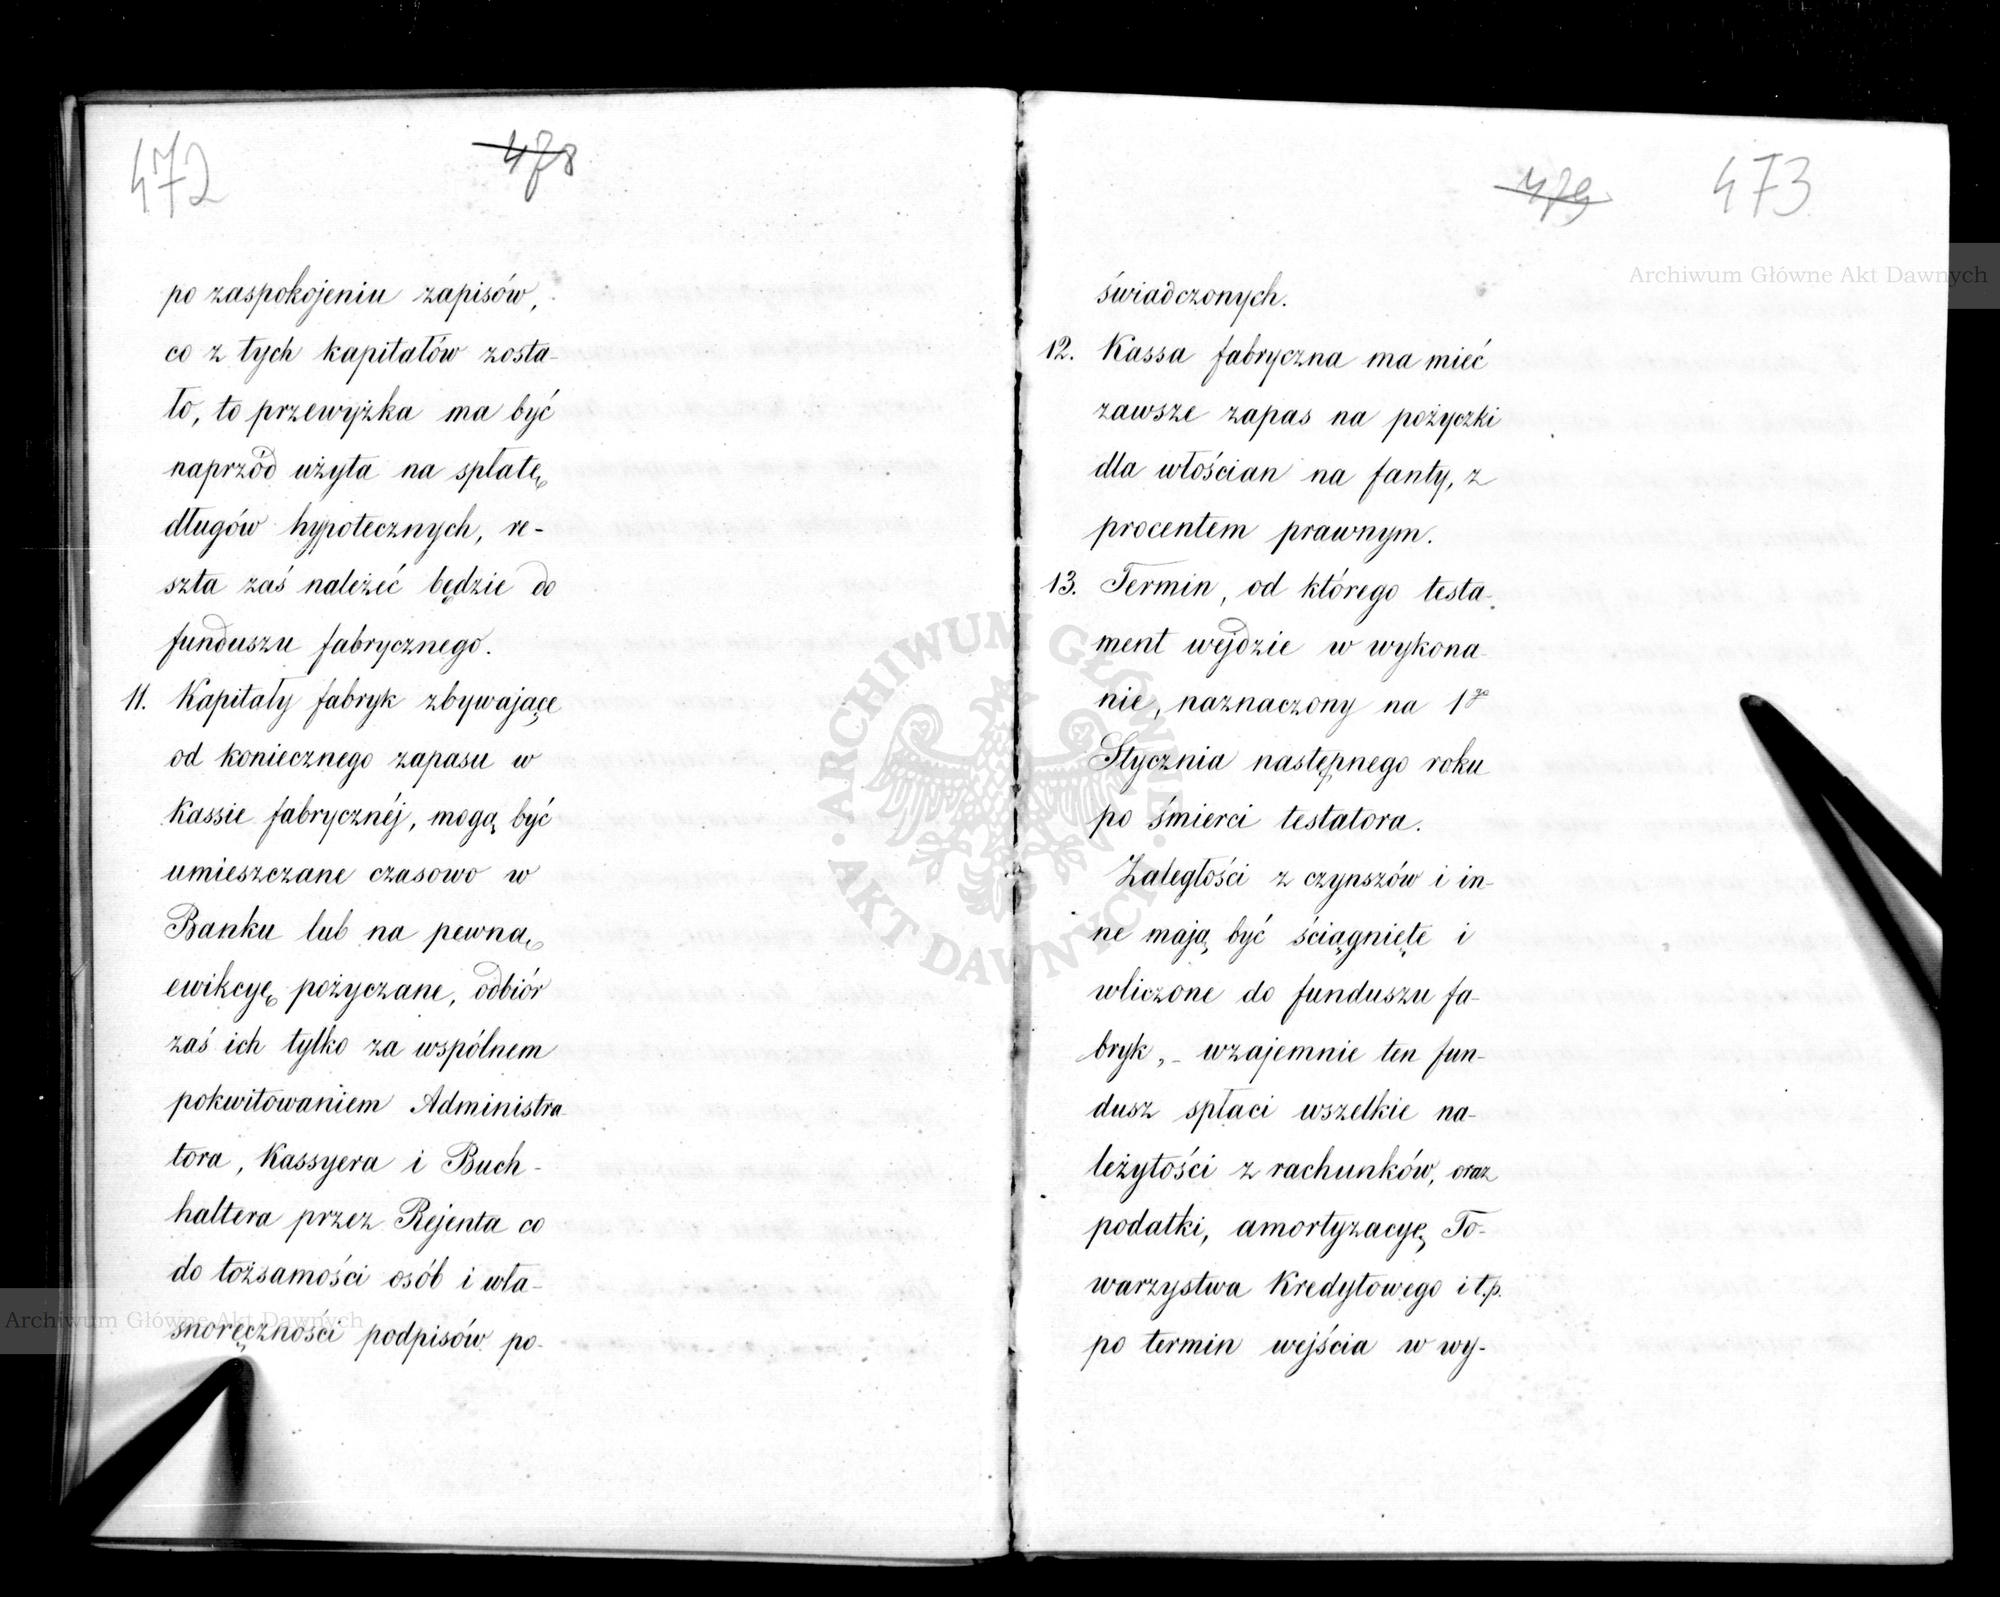 472
478
po zaspokojeniu zapisów,
co z tych kapitałów zosta-
ło, to przewyżka ma być
naprzód użyta na spłatę
długów hypotecznych, re-
szta zaś należéć będzie do
funduszu fabrycznego.
11. Kapitały fabryk zbywające
od koniecznego zapasu w
kassie fabrycznéj, mogą być
umieszczane czasowo w
Banku lub na pewną
ewikcyę pożyczane, odbiór
zaś ich tylko za wspólnem
pokwitowaniem Administra-
tora, Kassyera i Buch-
haltera przez Rejenta co
do tożsamości osób i wła-
snoręczności podpisów po-
479
473
świadczonych.
12. Kassa fabryczna ma mieć
zawsze zapas na pożyczki
dla włościan na fanty, z
procentem prawnym.
13. Termin, od którego testa-
ment wejdzie w wykona-
nie, naznaczony na 1go
Stycznia następnego roku
po śmierci testatora.
Zaległości z czynszów i in-
ne mają być ściągnięte i
wliczone do funduszu fa-
bryk, - wzajemnie ten fun-
dusz spłaci wszelkie na-
leżytości z rachunków, oraz
podatki, amortyzacyę To-
warzystwa Kredytowego i t.p.
po termin wejścia w wy-
Archiwum Główne Akt Dawnych
Archiwum Główne Akt Dawnych
ARCHIWUM GŁÓWNE AKT DAWNYCH